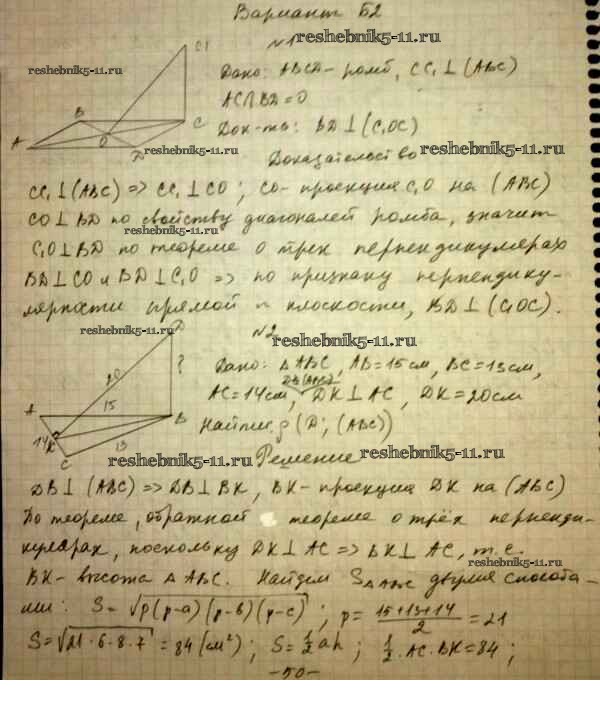 Вариант Б2
№1 reshebnik5-11.ru
C1
reshebnik5-11.ru
Дано: ABCD - ромб, CC₁ ⊥ (ABC)
AC∩BD = O
B
C
A
O
D
reshebnik5-11.ru
Док-ть: BD ⊥ (C₁OC)
Доказательство reshebnik5-11.ru
CC₁ ⊥ (ABC) => CC₁ ⊥ CO; CO - проекция C₁O на (ABC)
CO ⊥ BD по свойству диагоналей ромба, значит
C₁O ⊥ BD по теореме о трех перпендикулярах
BD ⊥ CO и BD ⊥ C₁O => по признаку перпендику-
лярности прямой и плоскости, BD ⊥ (C₁OC).
reshebnik5-11.ru
D
№2
reshebnik5-11.ru
?
20
15
A
B
14
K
13
C
Дано: ΔABC, AB = 15 см, BC = 13 см,
DB⊥(ABC)
AC = 14 см, DK ⊥ AC, DK = 20 см
Найти: ρ (D; (ABC))
reshebnik5-11.ru Решение reshebnik5-11.ru
DB ⊥ (ABC) => DB ⊥ BK, BK - проекция DK на (ABC)
По теореме, обратной теореме о трёх перпенди-
кулярах, поскольку DK ⊥ AC => BK ⊥ AC, т.е.
reshebnik5-11.ru
BK - высота ΔABC. Найдем S ΔABC двумя способа-
ми: S = √p(p-a)(p-b)(p-c); p = (15+13+14)/2 = 21
S = √21·6·8·7 = 84 (см²); S = 1/2 ah; 1/2 · AC · BK = 84;
-50-